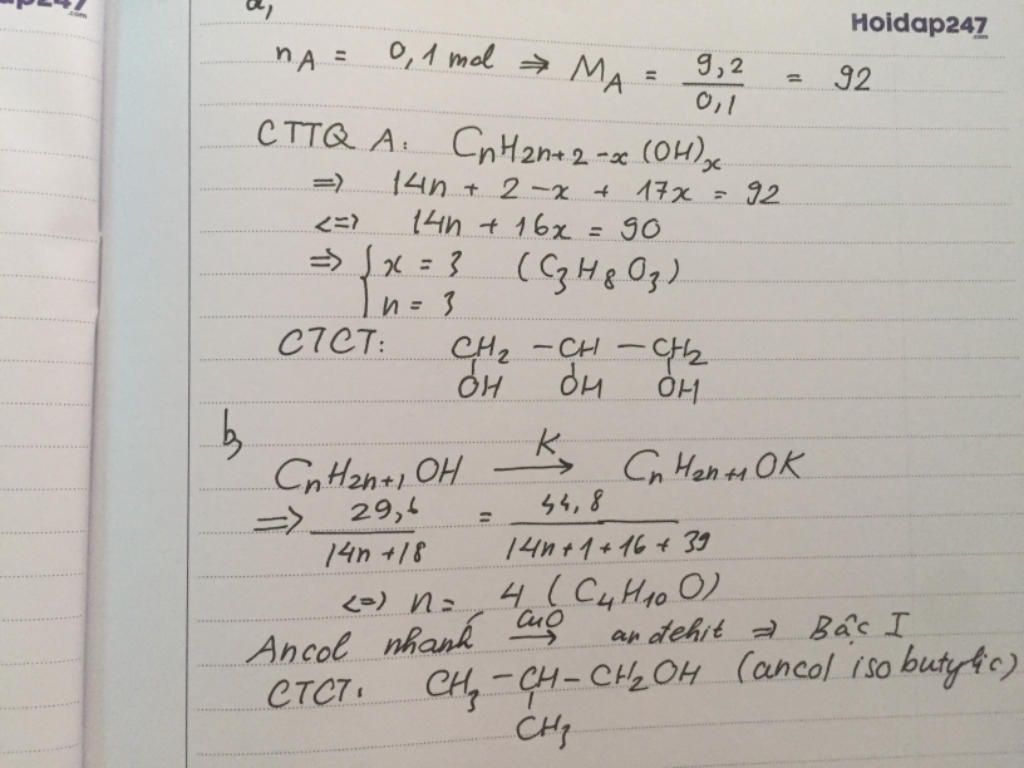 ap247
.com
Hoidap247
.com
a,
nA = 0,1 mol ⇒ MA = 9,2 / 0,1 = 92
CTTQ A: CnH2n+2-x (OH)x
⇒ 14n + 2 - x + 17x = 92
<=> 14n + 16x = 90
⇒ { x = 3 (C3H8O3)
n = 3
CTCT: CH2 - CH - CH2
OH OH OH
b,
CnH2n+1OH K→ CnH2n+1OK
⇒ 29,6 / 14n + 18 = 44,8 / 14n + 1 + 16 + 39
<=> n = 4 (C4H10O)
Ancol nhánh CuO→ anđehit ⇒ Bậc I
CTCT: CH3 - CH - CH2OH (ancol isobutylic)
CH3